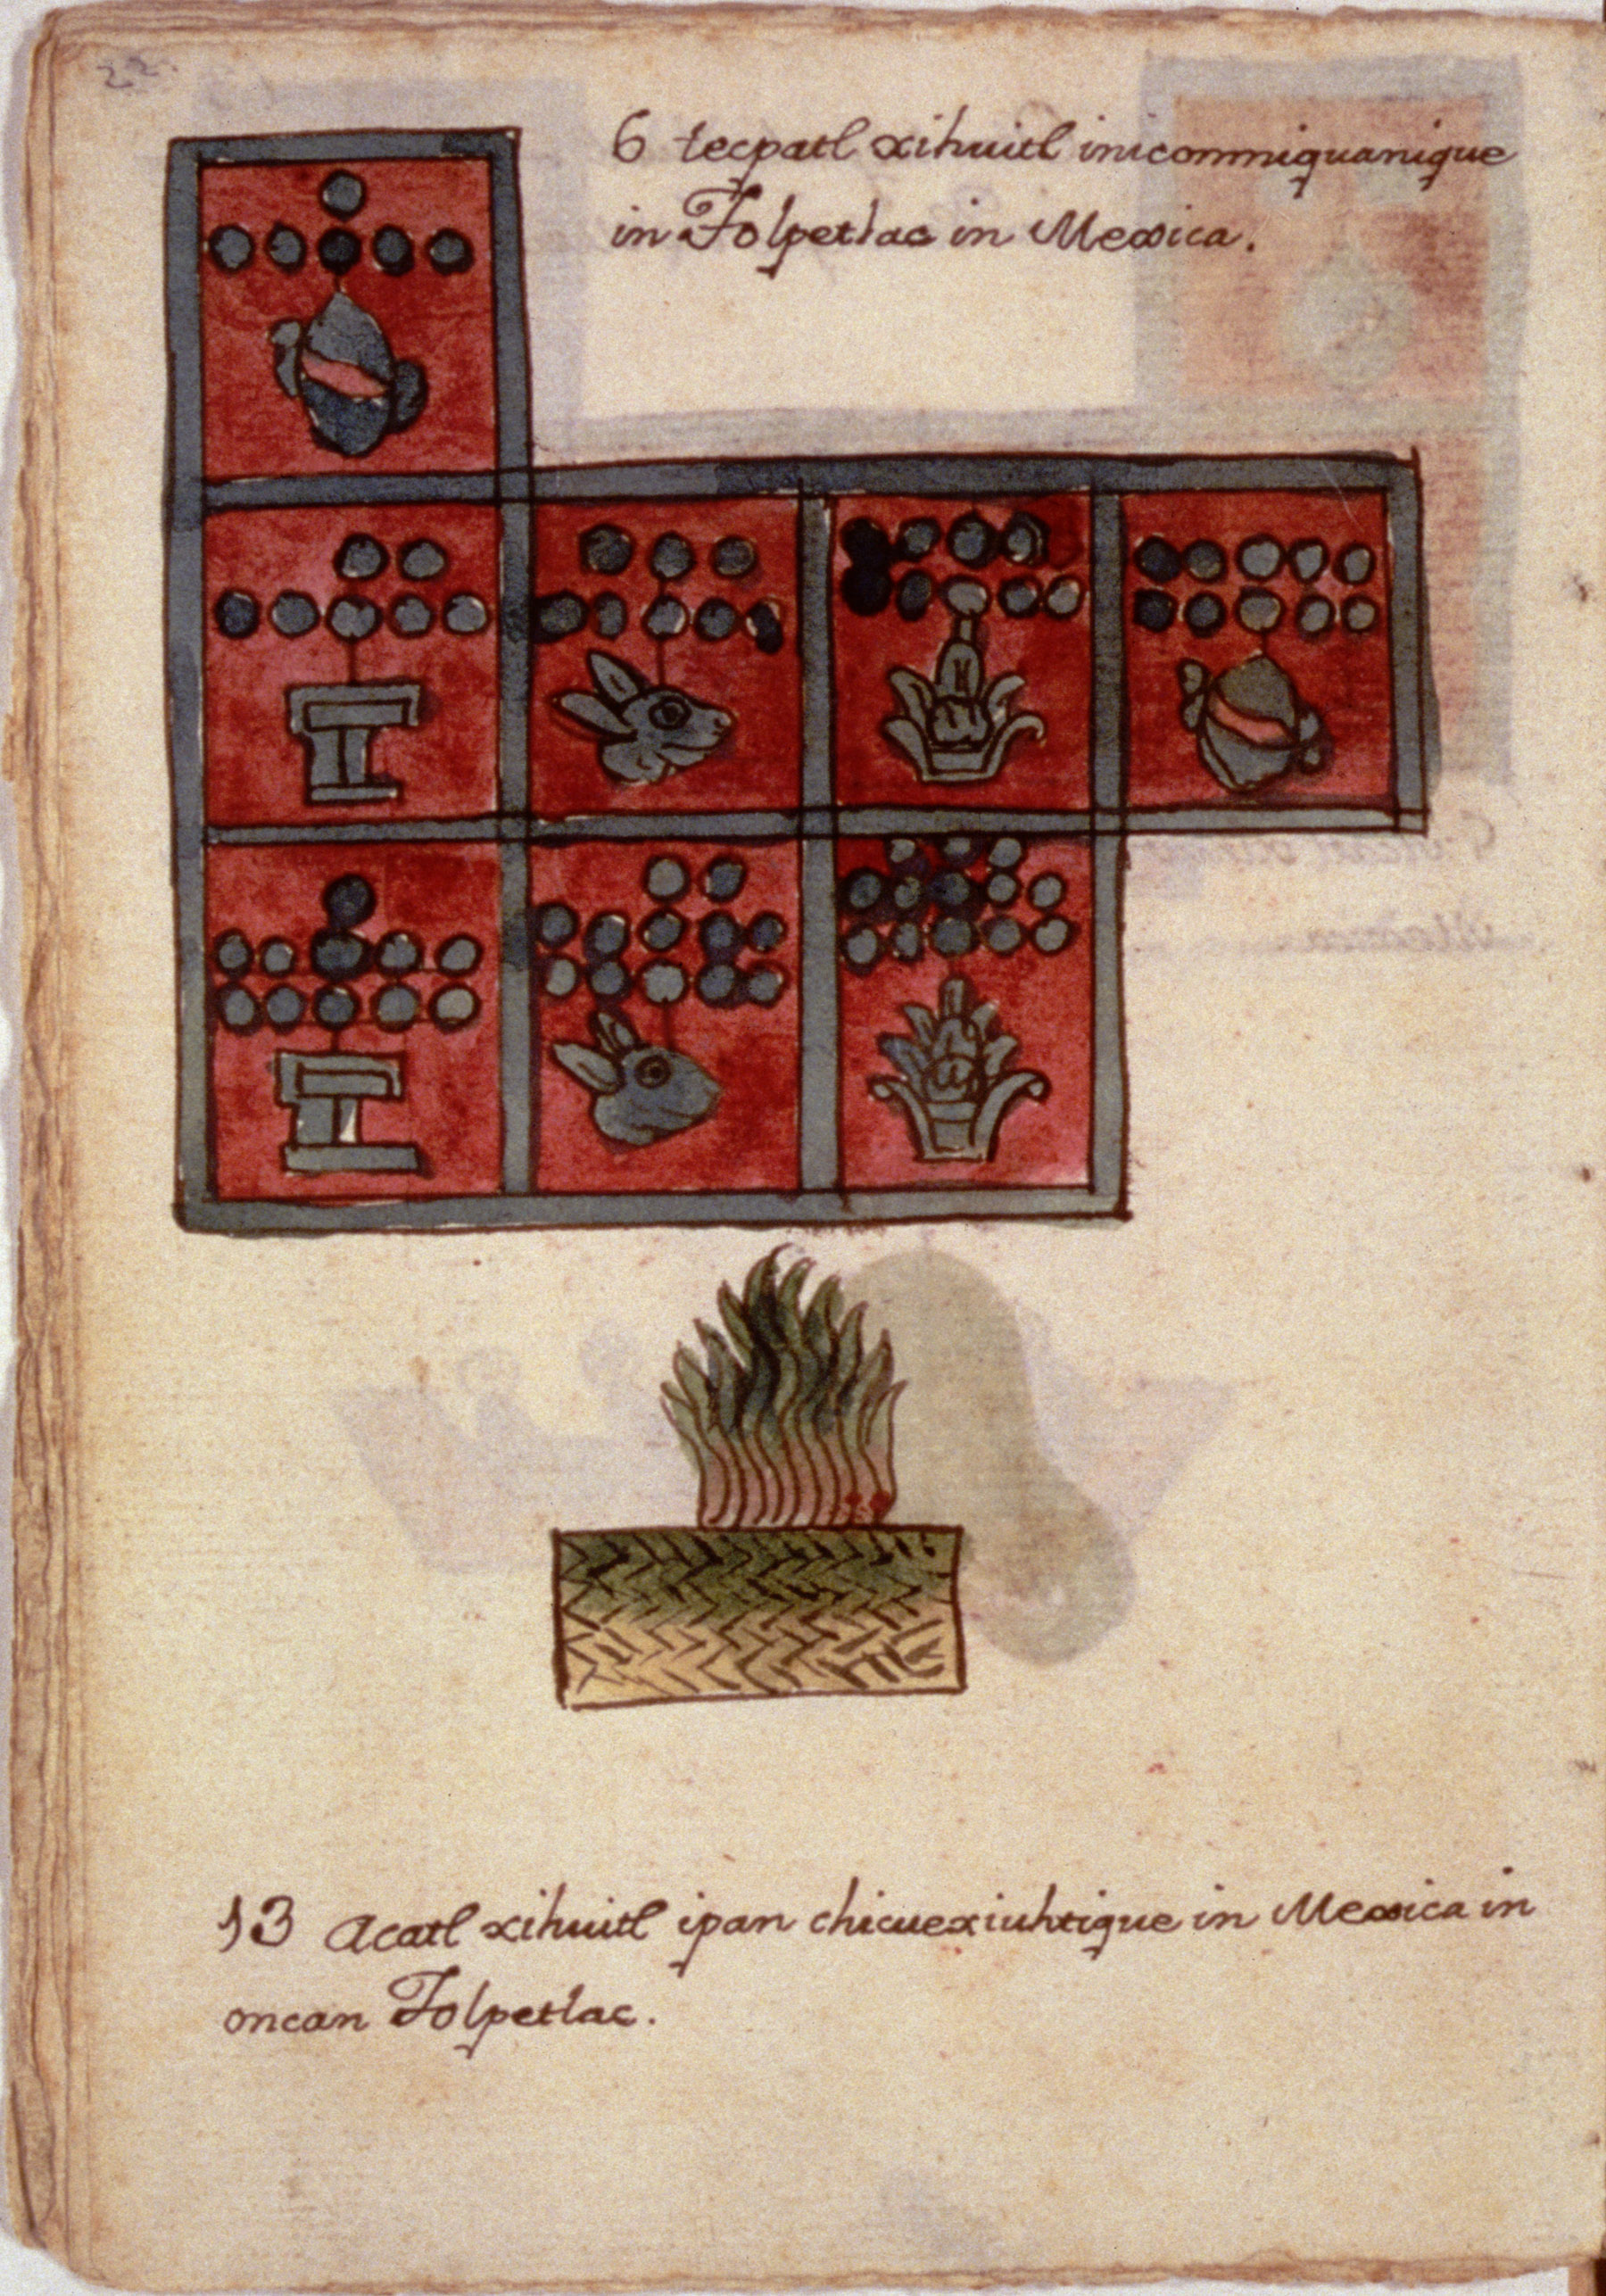 22.
6 tecpatl xihuitl inicommiquanique
in Tolpetlac in Mexica.
13 Acatl xihuitl ipan chicuexiuhtique in Mexica in
oncan Tolpetlac.